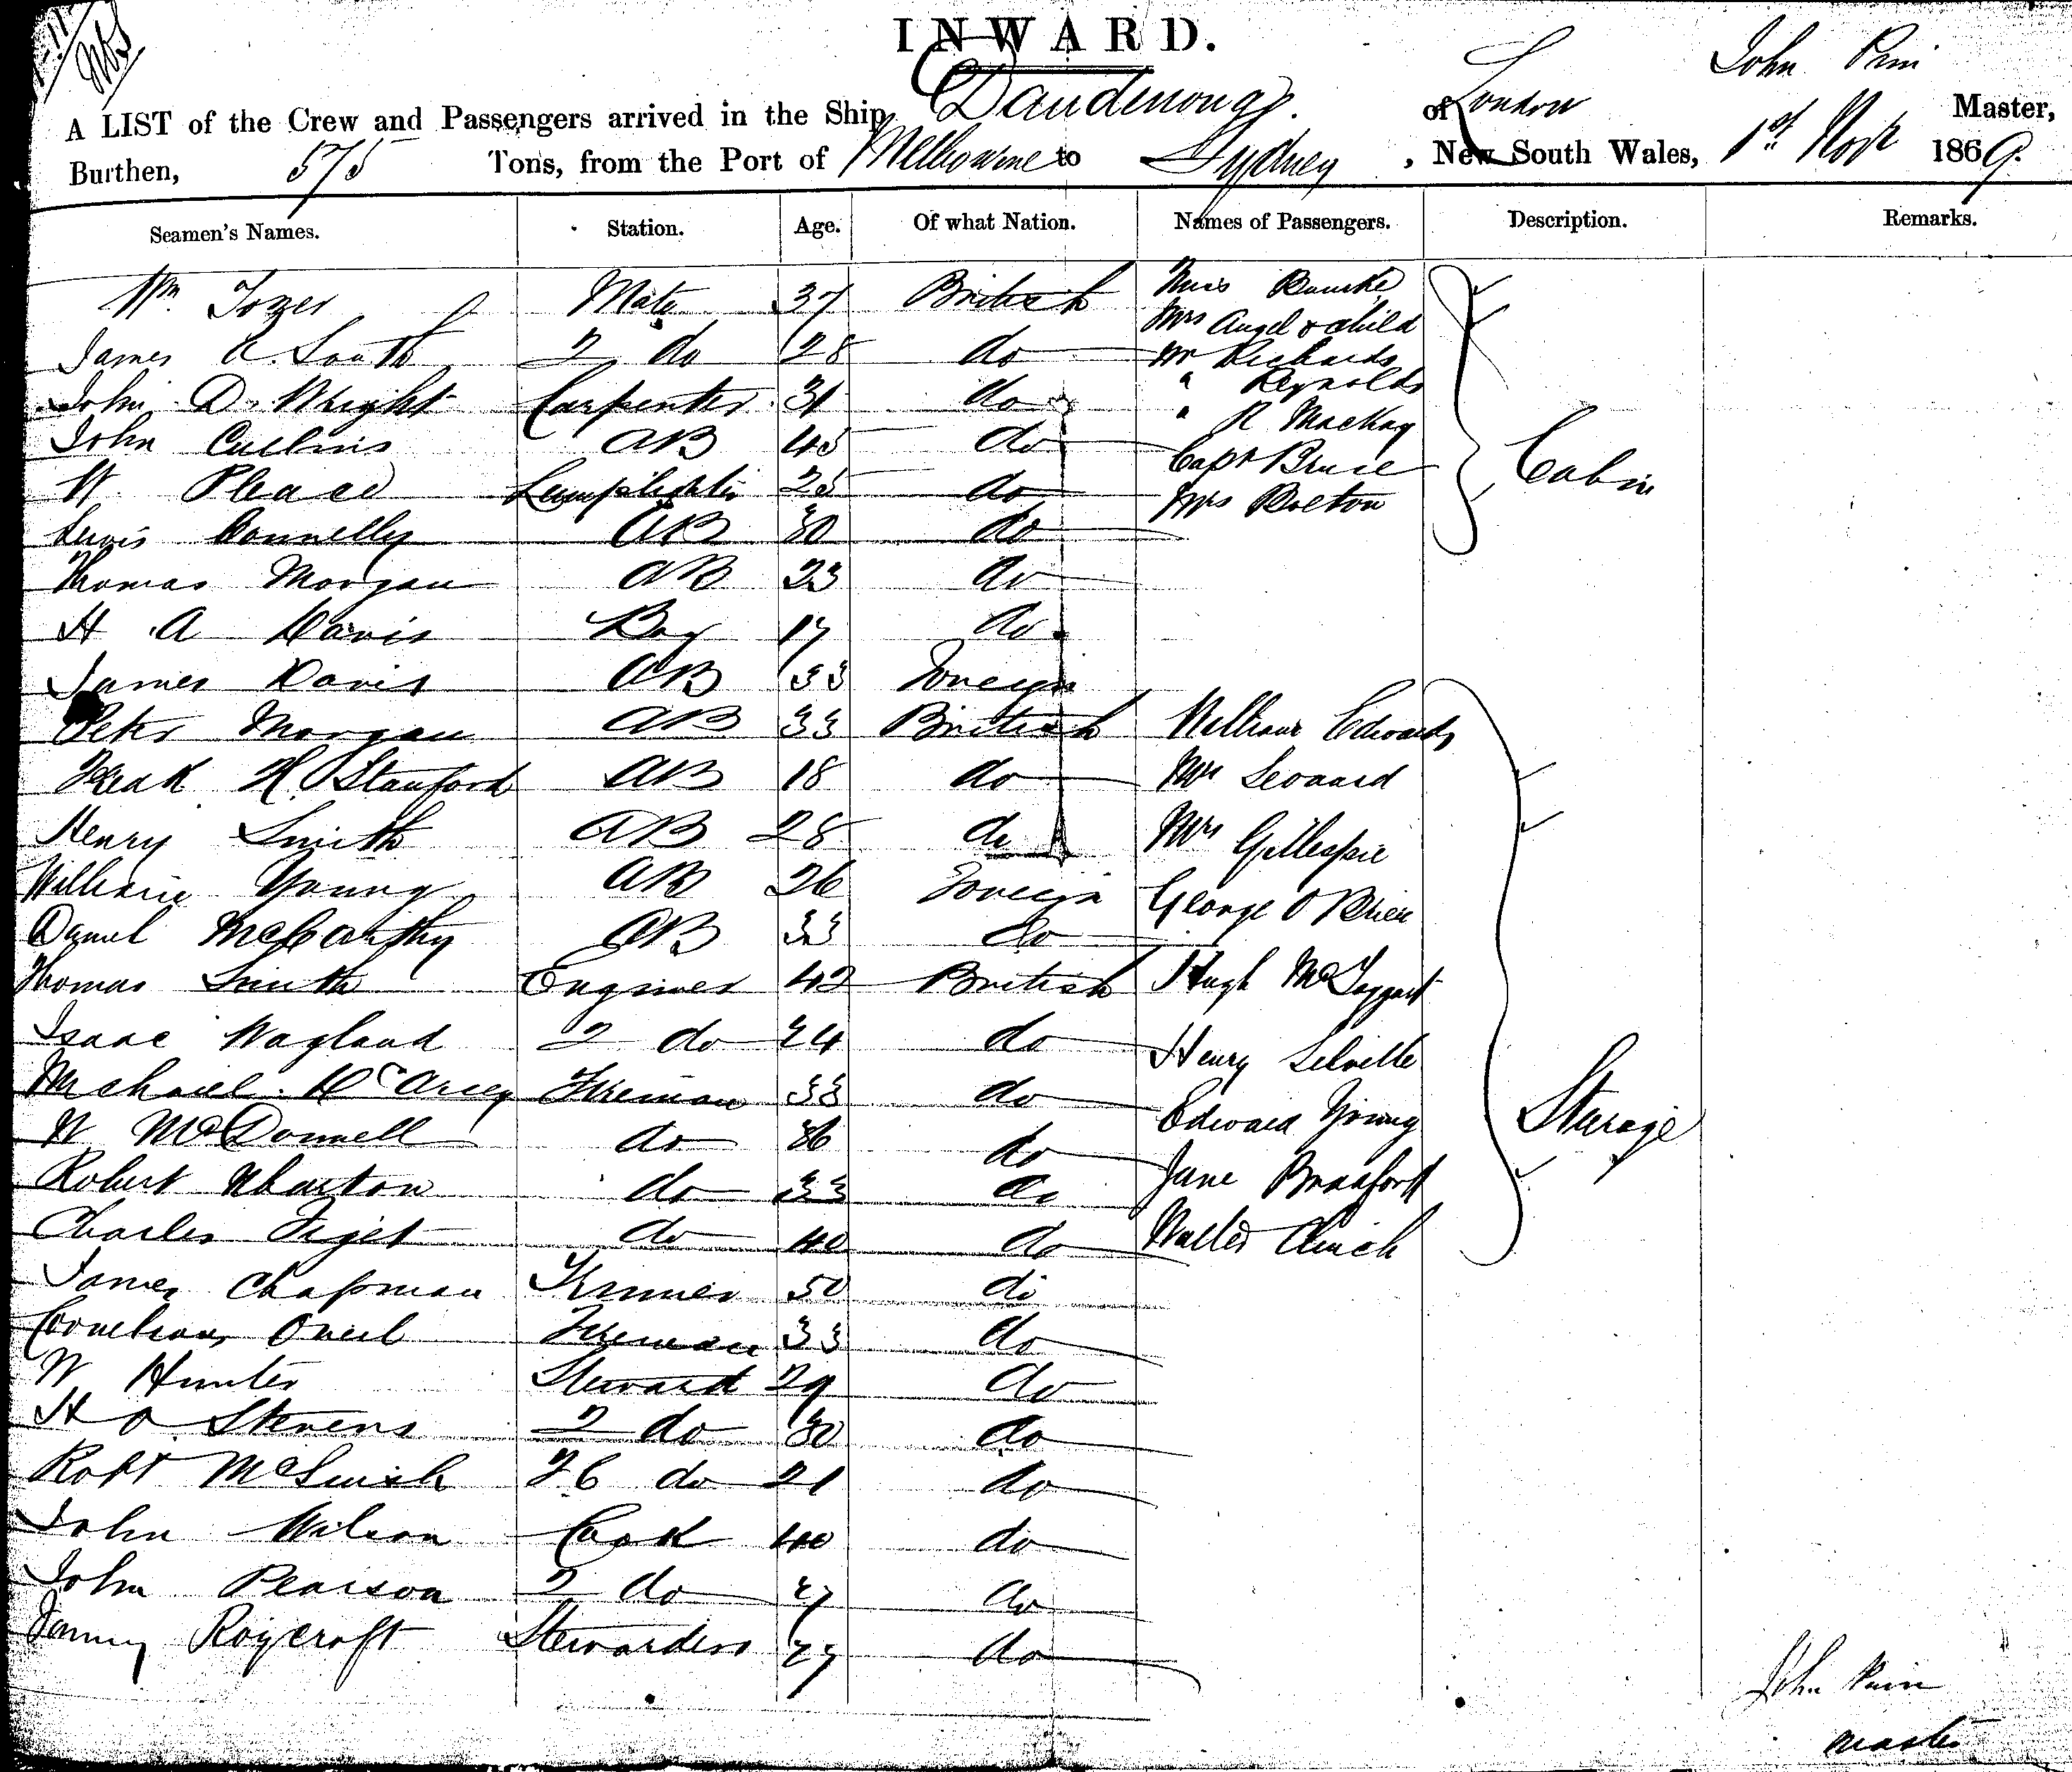 INWARD.
A LIST of the Crew and Passengers arrived in the Ship Dandenong of London John Master,
Burthen, 575 Tons, from the Port of Melbourne to Sydney, New South Wales, 1st Nov 1869.
Seamen's Names. Station. Age. Of what Nation. Names of Passengers. Description. Remarks.
Wm Tozer Mate 37 British Miss Rourke
Mrs Angel & child
James A. South 2 do 28 do Mr Richards
" Reynolds
John D. Wright Carpenter 31 do " R Mackay
John Cullins AB 45 do Capt Bruce Cabin
W. Please Lamplighter 25 do Mrs Bolton
Lewis Donnelly AB 30 do
Thomas Morgan AB 23 do
H A Davis Boy 17 do
James Davis AB 33 Foreign
Peter Morgan AB 33 British William Edwards
H. Stanford AB 18 do Mr Leonard
Henry Smith AB 28 do Mrs Gillespie
William Young AB 26 Foreign George O Brien
Daniel McCarthy AB 33 do
Thomas Smith Engineer 42 British Hugh McTaggart
Isaac Wagland 2 do 24 do Henry
Michael Fireman 33 do Edward Young Sterage
W McDonnell do 36 do
Robert Wharton do 33 do Jane
Charles do 40 do Walter Clinch
James Chapman Trimmer 50 do
Cornelious Oneil Fireman 33 do
W Hunter Steward 29 do
H O Stevens 2 do 30 do
Robt 2 C do 21 do
John Wilson Cook 40 do
John Pearson 2 do 27 do
Roycroft Stewardess 27 do
John
Master